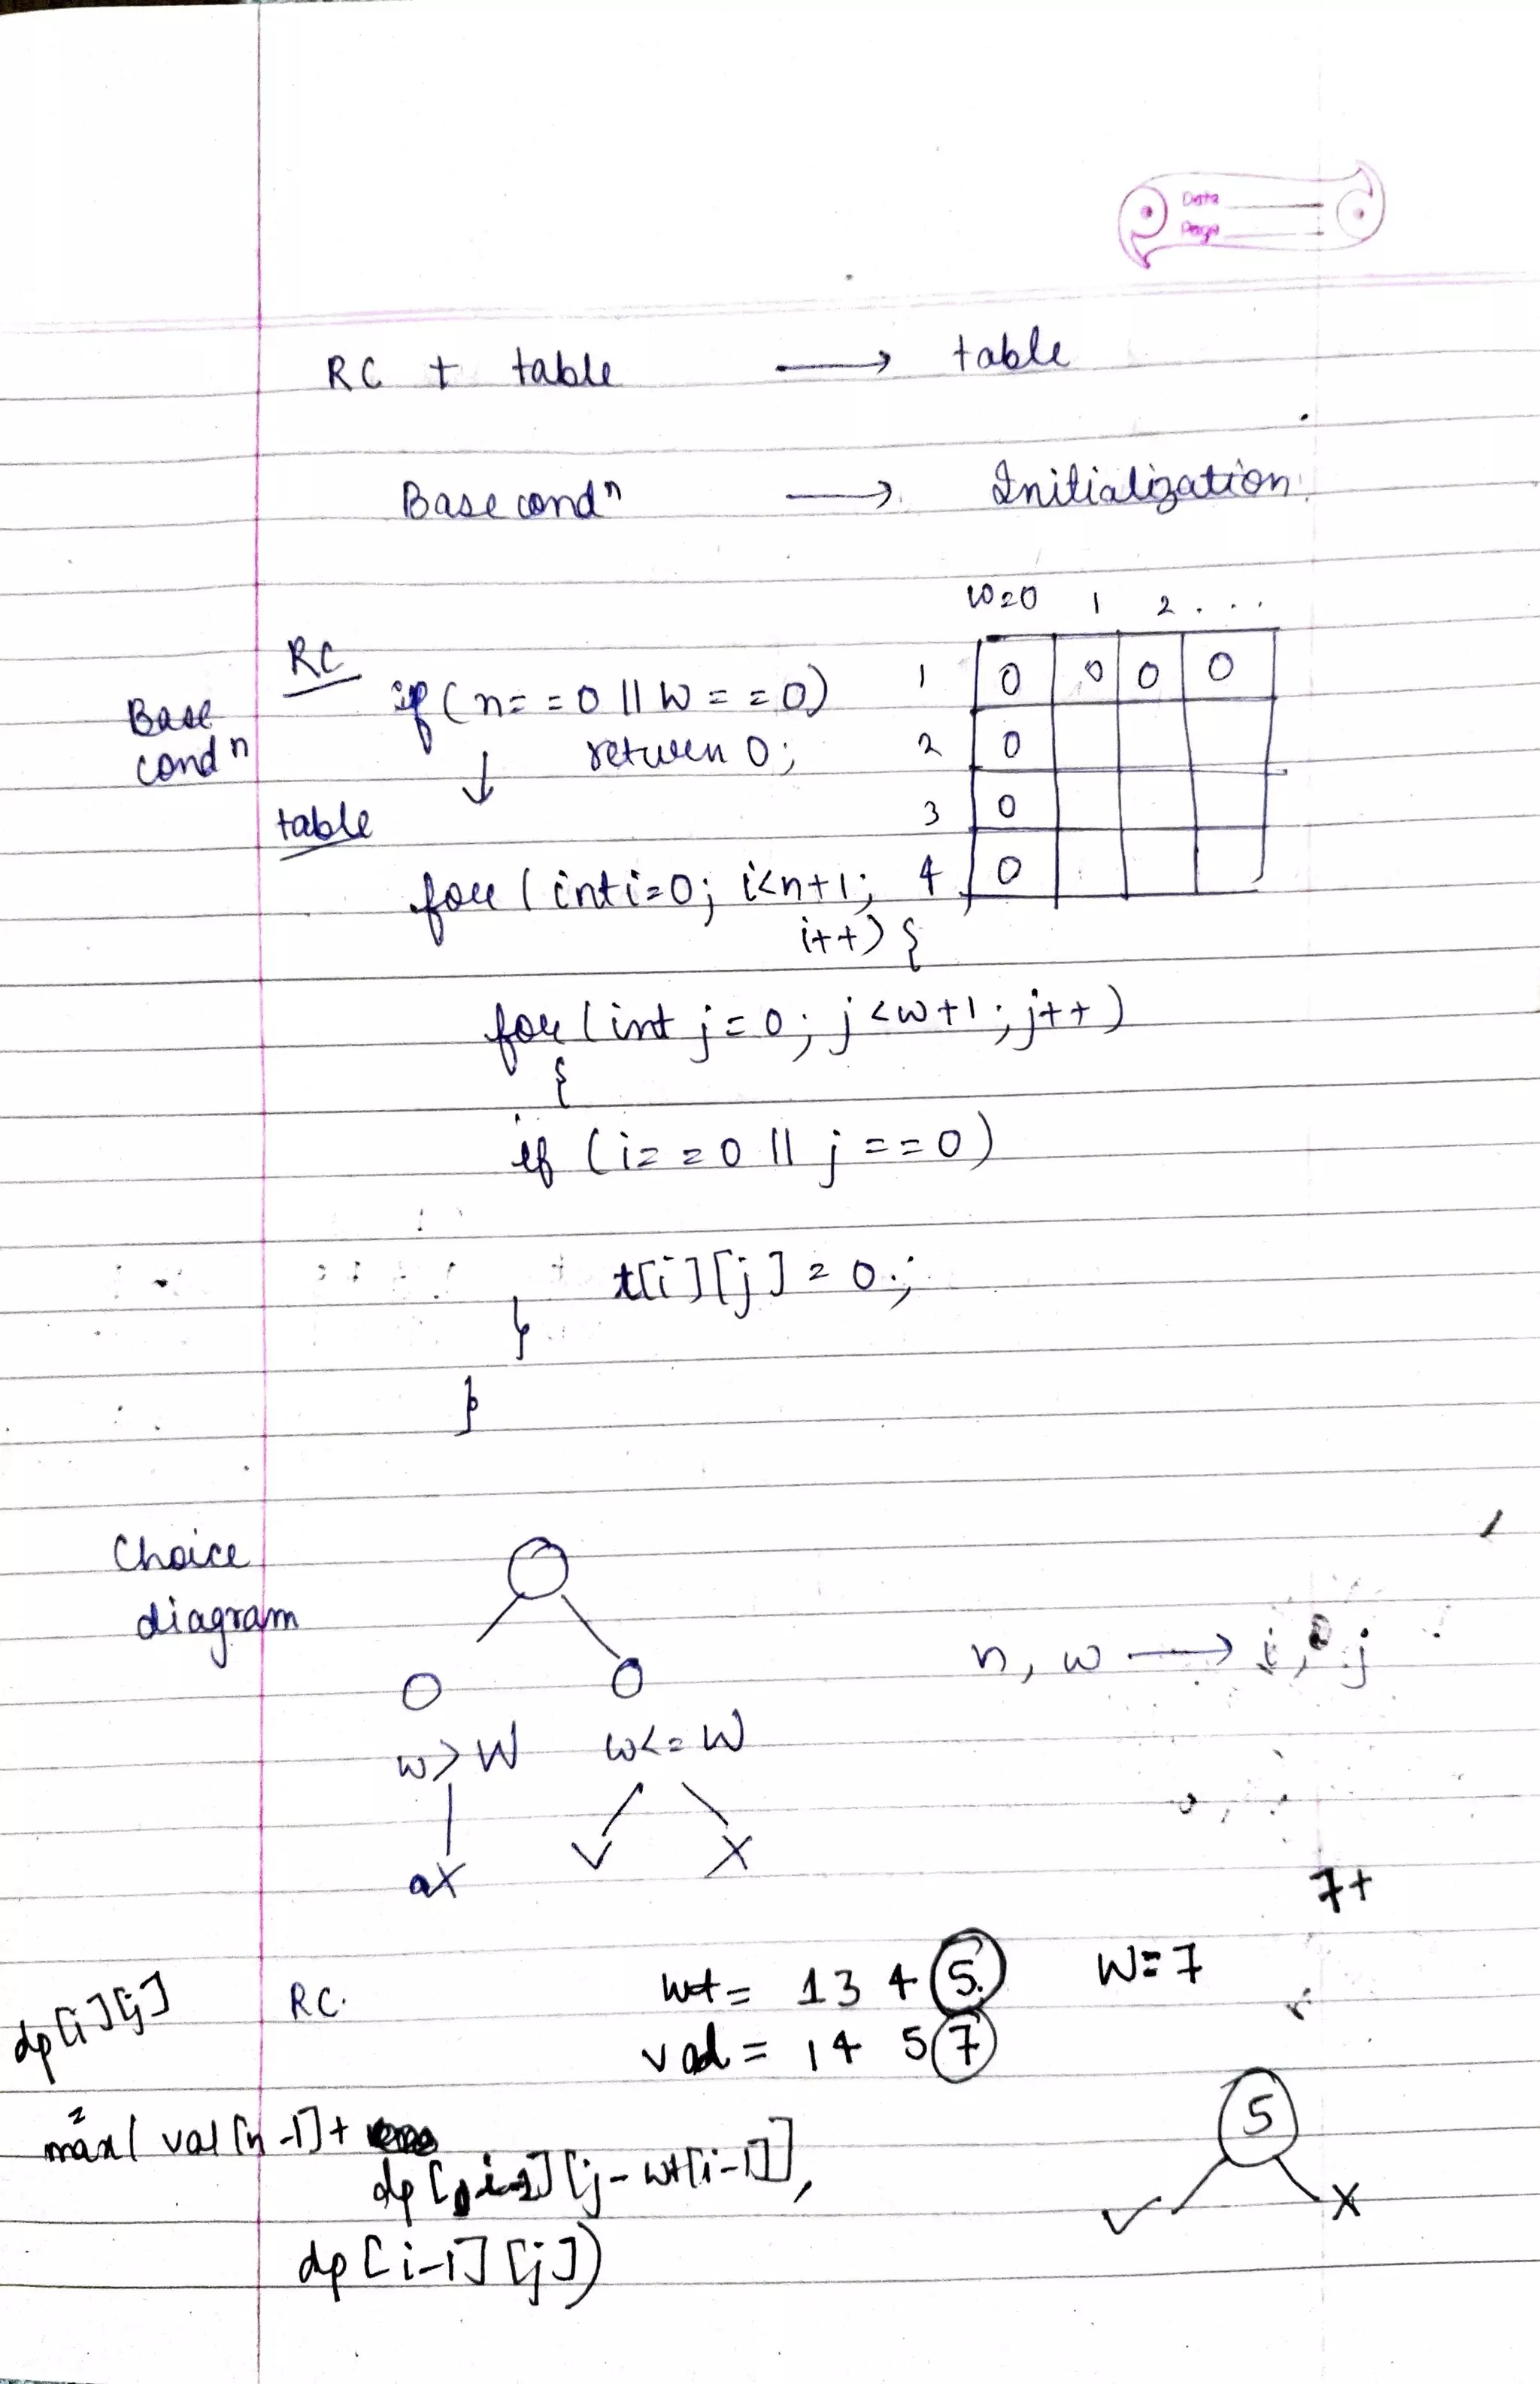 Data
Page
RC + table → table
Base condⁿ → Initialization
W=0 1 2 . . .
RC
Base condⁿ
if (n==0 || W==0)
return 0;
1 0 0 0 0
2 0
3 0
4 0
↓
table
for (int i=0; i<n+1;
i++) {
for (int j=0; j<w+1; j++)
{
if (i==0 || j==0)
t[i][j] = 0;
}
}
Choice
diagram
n, w → i, j
w>W w<=W
X ✓ X
7+
dp[i][j]
RC.
wt = 1 3 4 5 W=7
val = 1 4 5 7
5
= max( val[n-1]+
dp[i-1][j-wt[i-1]],
✓ X
dp[i-1][j])